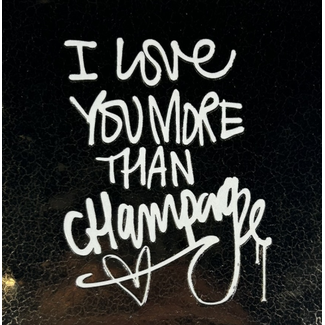 I LOVE
YOU MORE
THAN
CHAMPAGNE